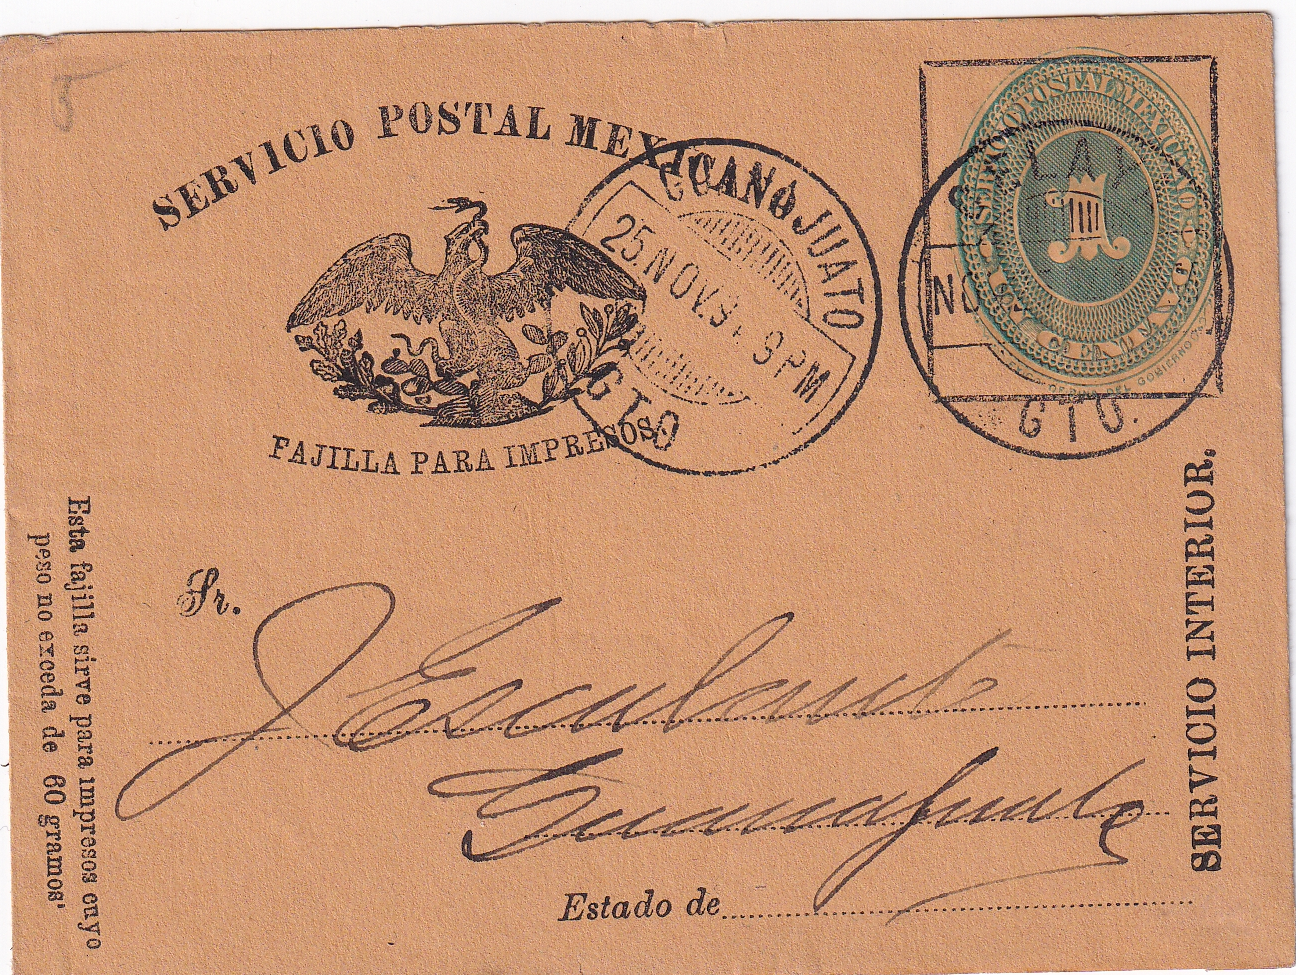 SERVICIO POSTAL MEXICANO
FAJILLA PARA IMPRESOS
GUANAJUATO
25.NOV.9 9 PM
GTO
SERVICIO POSTAL MEXICANO
1
UN CENTAVO
NO
GTO.
SERVICIO INTERIOR.
Sr. J Escalante
Guanajuato
Estado de
Esta fajilla sirve para impresos cuyo
peso no exceda de 60 gramos